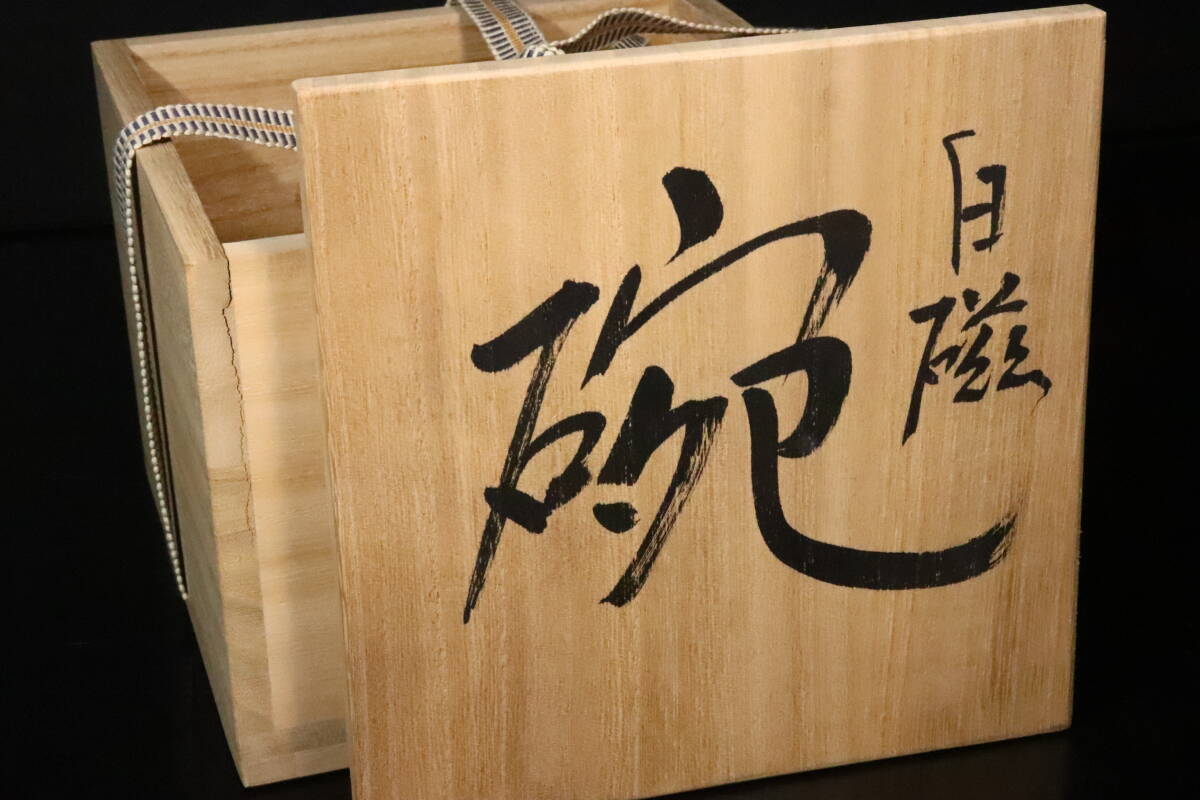 白磁
碗